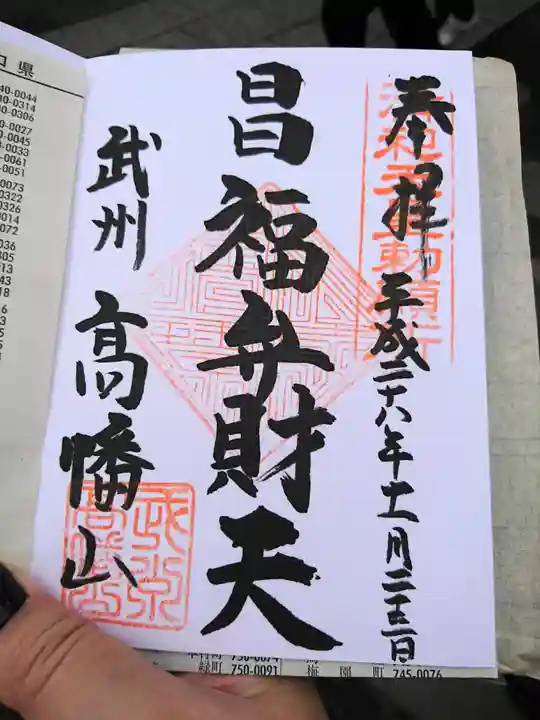 奉拝
平成二十八年十一月二十三日
昌福弁財天
武州
高幡山
口県
40-0044
40-0314
40-0306
40-0027
0-0045
0-0033
-0061
-0051
0073
0322
0326
0014
0072
036
305
013
43
18
緑町 750-0091
梅園町 745-0076